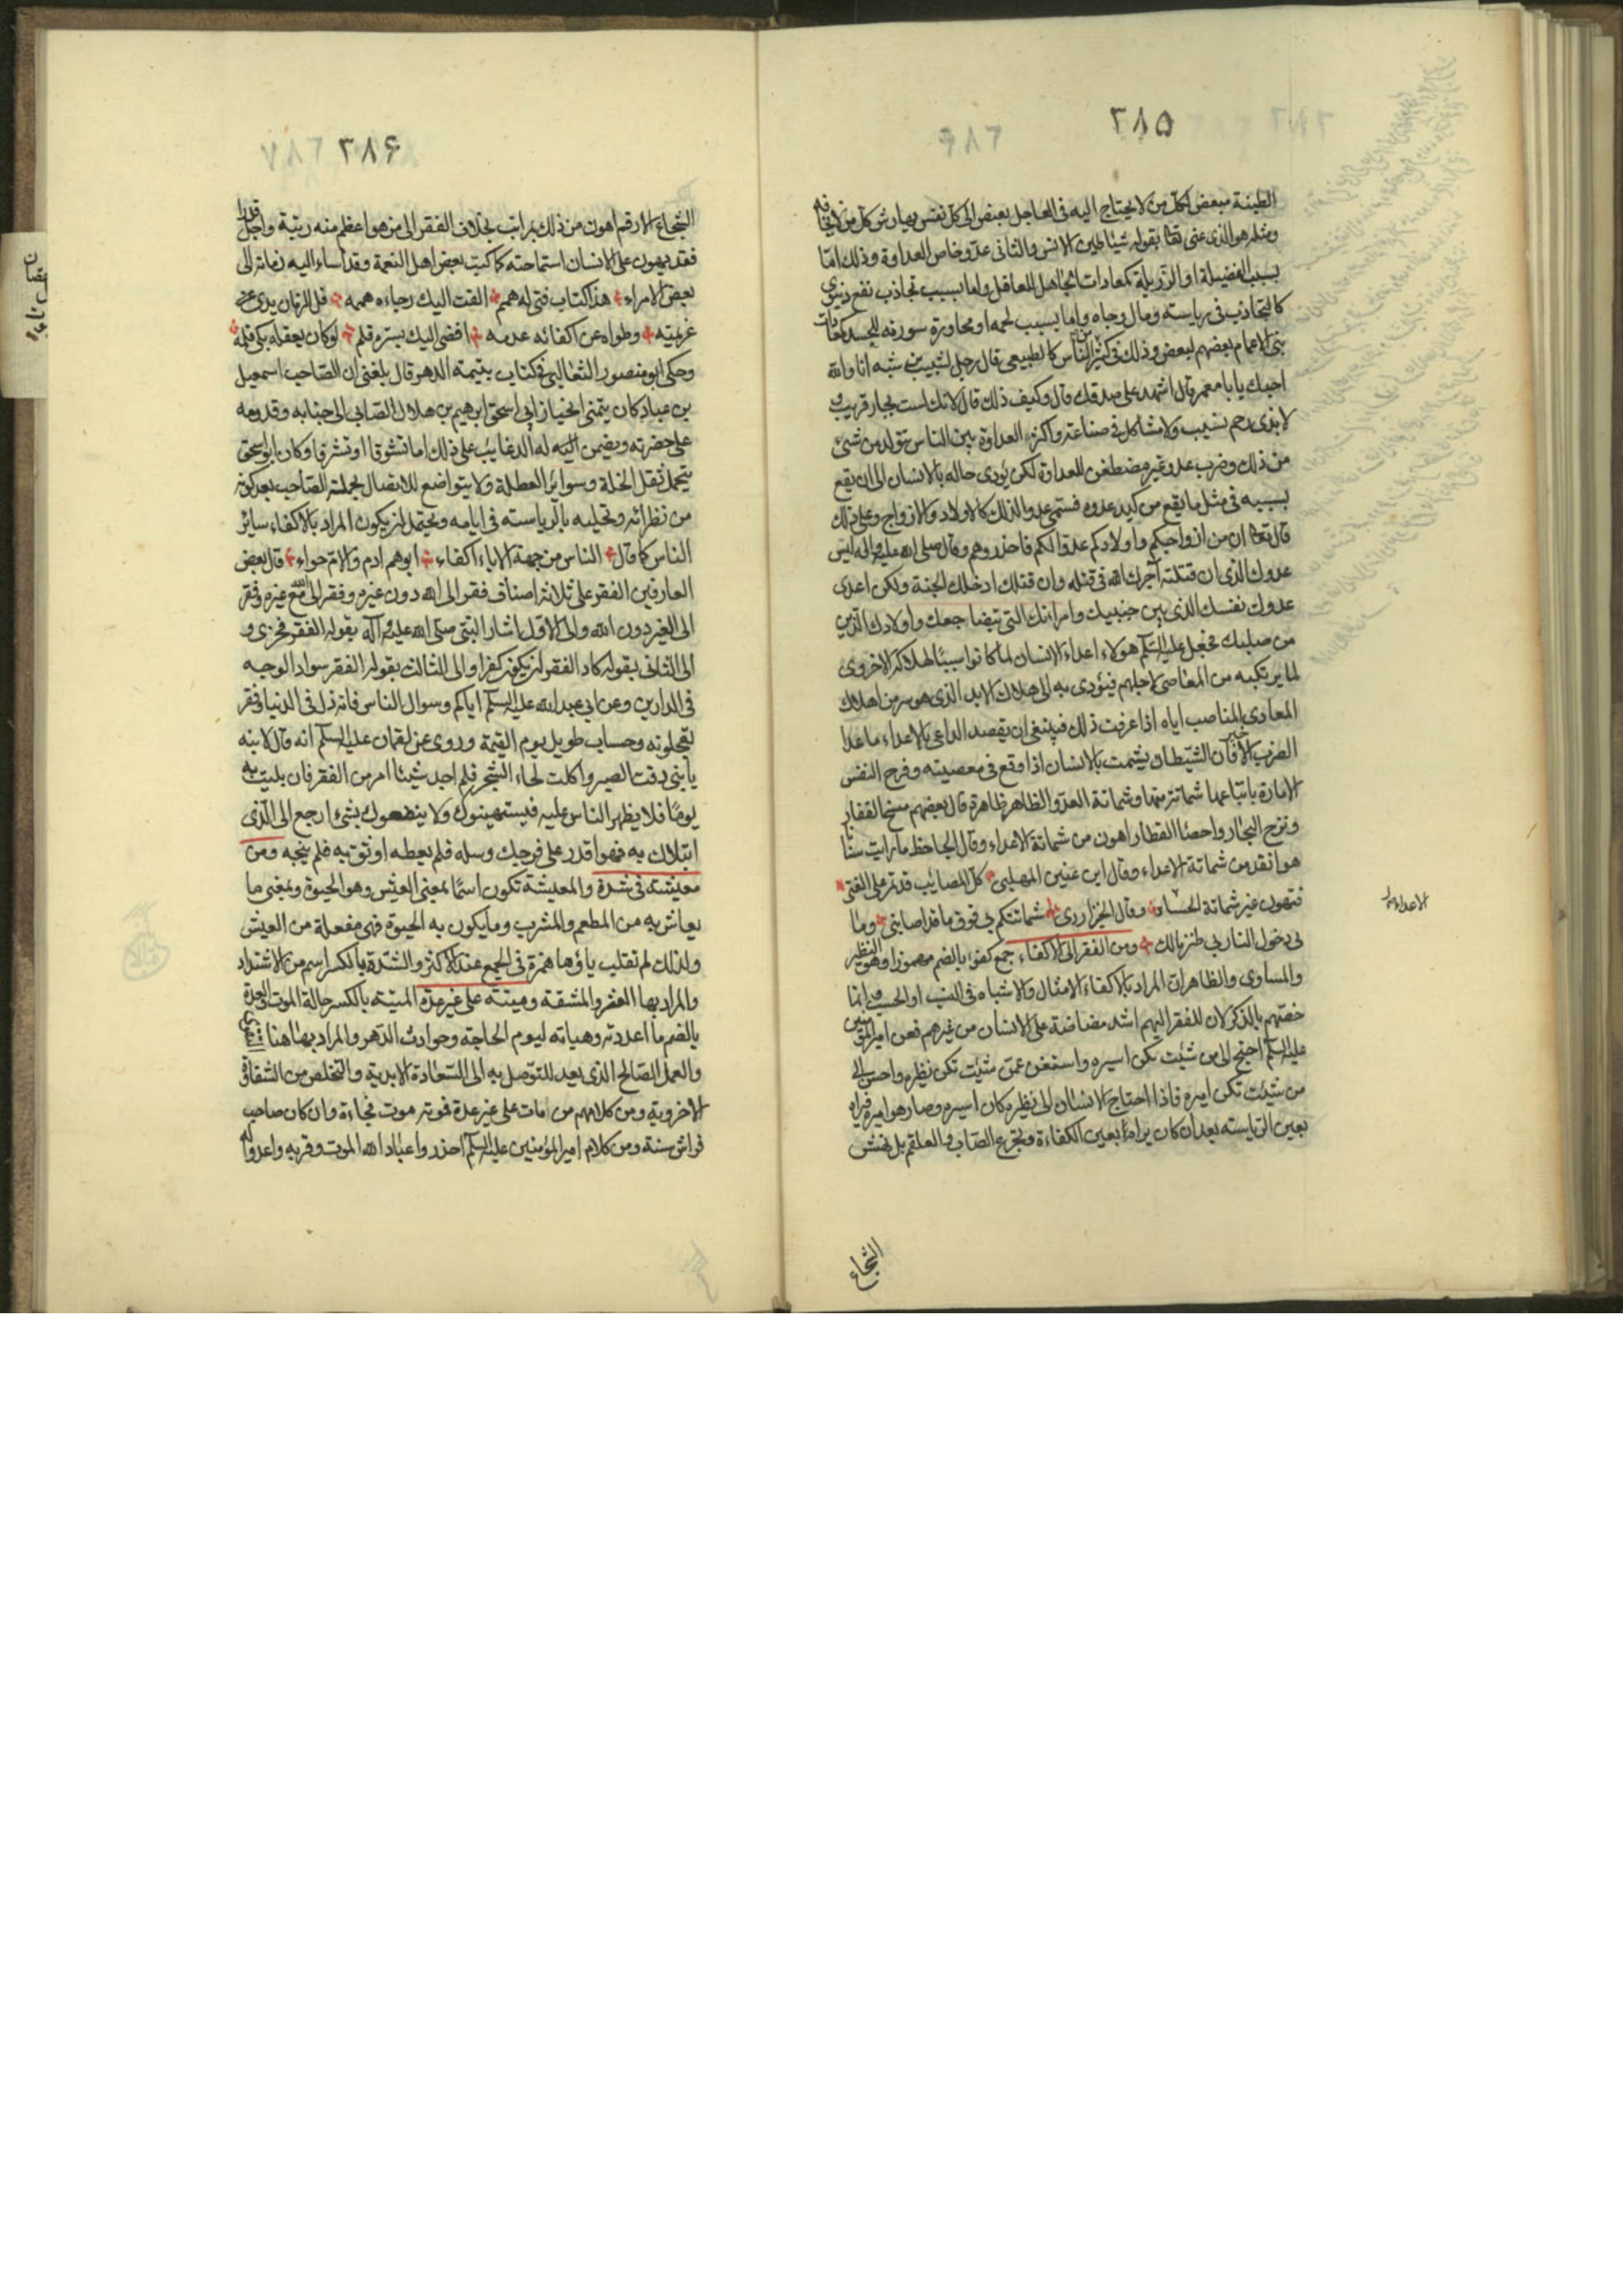 ٣٨۵
الطينة مبغض لكل من لا يحتاج اليه فى العاجل بعنص الى كل نفس يهارش كل من لا يخافه
ومثله هو الذى عنى تعالى بقوله شياطين الانس والثانى عدو خاص العداوة وذلك امّا
بسبب الفضيلة او الرّزيلة كمعادات الجاهل للعاقل واما بسبب تجاذب نفع دنيوى
كالتجاذب فى رياسته ومال وجاه واما بسبب لحمه او مجاورة مورثه للحسد كمعادات
بنى الاعمام بعضهم لبعض وذلك فى كثير من الناس كالطبيعى قال رجل لشبيب بن شبه انا والله
احبك يا با معمر قال اشهد على صدقك قال وكيف ذلك قال لانك لست بجار قريب و
لا بذى رحم نسيب ولا مشاكل فى صناعة واكثر العداوة بين الناس تتولد من شىء
من ذلك وضرب عدو غير مضطغن للعداوة لكن يؤدى حاله بالانسان الى ان يقع
بسببه فى مثل ما يقع من كيد عدوه فسمى عدوا لذلك كالاولاد والازواج وعلى ذلك
قال تعالى ان من ازواجكم واولادكم عدوّا لكم فاحذروهم وقال صلى الله عليه واله ليس
عدوك الذى ان قتلته آجرك الله فى قتله وان قتلك ادخلك الجنة ولكن اعدى
عدوك نفسك الذى بين جنبيك وامراءتك التى تضاجعك واولادك الذين
من صلبك فجعل عليه السلم هولاء اعداء الانسان لما كانوا سببًا لهلاكه الاخروى
لما يرتكبه من المعاصى لاجلهم فيؤدى به الى هلاك الابد الذى هو شر من اهلاك
المعادى المناصب اياه اذا عرفت ذلك فينبغى ان يقصد الداعى بالاعداء ما عدا
الضرب الاخير فان الشيطان يشمت بالانسان اذا وقع فى معصيته وفرح النفس
الامارة باتباعها شماتة منها وشماتة العدوّ الظاهر ظاهرة قال بعضهم مسح القفار
ونزح البحار واحصاء القطار اهون من شماتة الاعداء وقال الجاحظ ما رايت سنانًا
هو انفذ من شماتة الاعداء وقال ابن عنين المهلبى كل المصايب قد تمر على الفتى
فتهون غير شماتة الحساد وقال الخبزارزى شماتتكم بى فوق ما قد اصابنى وما
بى دخول النار بى طنز مالك ومن الفقر الى الاكفاء جمع كفو بالضم مهموزا وهو النظير
والمساوى والظاهر ان المراد بالاكفاء الامثال والاشباه فى النسب او الحسب وانما
خصّهم بالذكر لان للفقر اليهم اشد مضاضة على الانسان من غيرهم فعن امير المؤمنين
عليه السلم احتج الى من شئت تكن اسيره واستغن عمّن شئت تكن نظيره واحسن الى
من شئت تكن اميره فاذا احتاج الانسان الى نظيره كان اسيره وصار هو اميره فيراه
بعين الرّياسته بعد ان كان يراه بعين الكفاءة وتجرع الصّاب والعلقم بل نهش
الشجاع
الاعداء
٣٨۶
الشجاع الارقم اهون من ذلك بمراتب بخلاف الفقر الى من هو اعظم منه رتبة واجل قدرا
فقد يهون على الانسان استماحته كما كتب بعض اهل النعمة وقد اساء اليه زمانه الى
بعض الامراء هذا كتاب فتى له همم القت اليك رجاءه هممه فل الزمان يدى عزيمته
وطواه عن اكفائه عدمه افضى اليك بسرّه قلم لو كان يعقله بكى قلمه
وحكى ابو منصور الثعالبى فى كتاب يتيمة الدهر قال بلغنى ان الصّاحب اسمعيل
بن عباد كان يتمنى انحياز ابى اسحق ابرهيم بن هلال الصّابى الى جنابه وقدومه
على حضرته ويضمن اليه له الرغايب على ذلك اما تشوقا او تشرفا وكان ابو اسحق
يتحمل ثقل الخلة وسوء اثر العطلة ولا يتواضع للاتصال بجملة الصّاحب بعد كونه
من نظرائه وتحليه بالرياسته فى ايامه ويحتمل ان يكون المراد بالاكفاء سائر
الناس كما قال الناس من جهة الاباء اكفاء ابوهم ادم والام حواء قال بعض
العارفين الفقر على ثلاثة اصناف فقر الى الله دون غيره وفقر الى الله مع غيره وفقر
الى الغير دون الله والى الاول اشار النبى صلى الله عليه وآله بقوله الفقر فخرى و
الى الثانى بقوله كاد الفقر ان يكون كفرا والى الثالث بقوله الفقر سواد الوجه
فى الدارين وعن ابى عبد الله عليه السلم اياكم وسوال الناس فانه ذل فى الدنيا وفقر
تعجلونه وحساب طويل يوم القيمة وروى عن لقمان عليه السلم انه قال لابنه
يا بنى ذقت الصبر واكلت لحاء الشجر فلم اجد شيئا امر من الفقر فان بليت به
يومًا فلا يظهر الناس عليه فيستهينوك ولا ينفعوك بشىء ارجع الى الّذى
ابتلاك به فهو اقدر على فرجك وسله فلم يعطه او وثق به فلم ينجه ومن
معيشته فى شدة والمعيشة تكون اسمًا بمعنى العيش وهو الحيوة وبمعنى ما
يعاش به من المطعم والمشرب وما يكون به الحيوة فهى مفعلة من العيش
ولذلك لم تقلب ياؤها همزة فى الجمع عند الاكثر والشدّة بالكسر اسم من الاشتداد
والمراد بها العسر والمشقة وميتته على غير عدّة الميتة بالكسر حالة الموت والعدة
بالضم ما اعددته وهياته ليوم الحاجة وحوادث الدّهر والمراد بها هنا
والعمل الصّالح الذى يعد للتوصل به الى السعادة الابدية والتخلص من الشقاوة
الاخروية ومن كلامهم من مات على غير عدة فموته موت فجاءة وان كان صاحب
فراش سنة ومن كلام امير المؤمنين عليه السلم احذروا عباد الله الموت وقربه واعدوا له